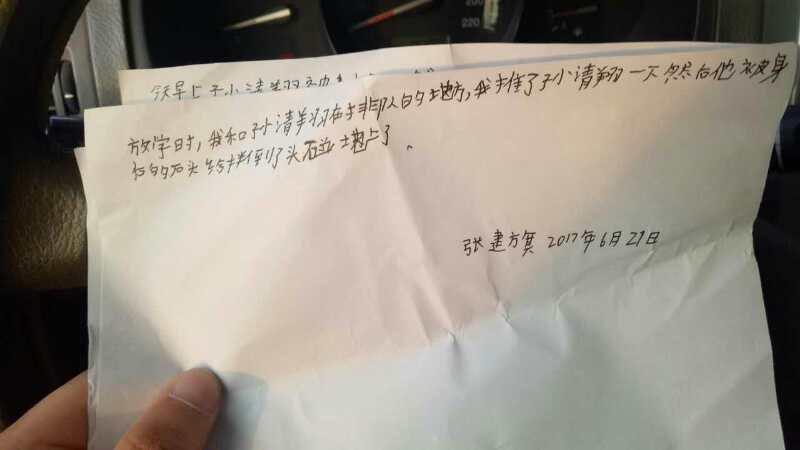 220
200
今早上孙清翔
放学时,我和孙清翔在排队的地方,我推了孙清翔一下然后他被身
后的石头给拌到了头碰地上了。
张建旗 2017年6月29日